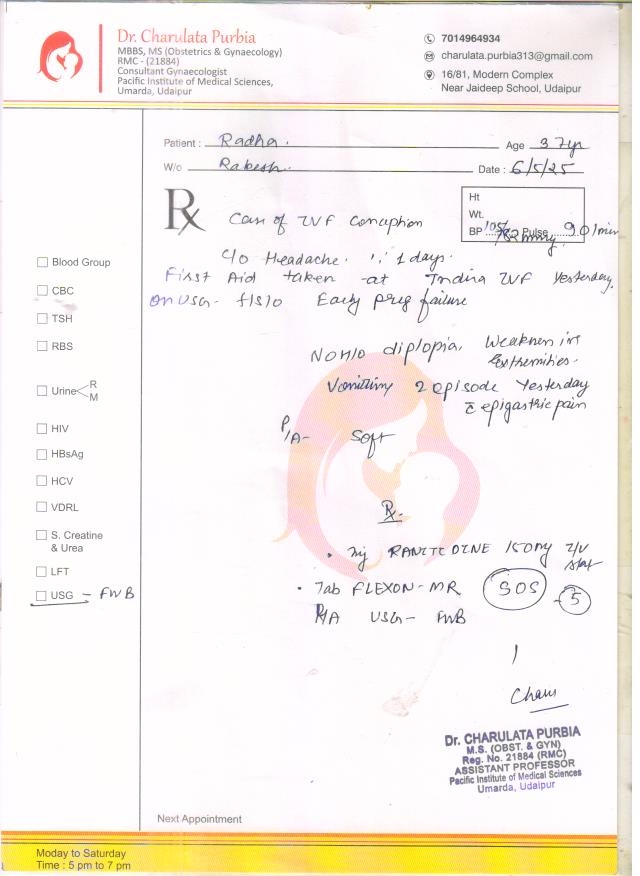 Dr. Charulata Purbia
MBBS, MS (Obstetrics & Gynaecology)
RMC - (21884)
Consultant Gynaecologist
Pacific Institute of Medical Sciences,
Umarda, Udaipur
7014964934
charulata.purbia313@gmail.com
16/81, Modern Complex
Near Jaideep School, Udaipur
Patient : Radha. Age 37yr
W/o Rakesh. Date : 6/5/25
Rx Case of IVF Conception
Ht
Wt.
BP 105/ Pulse 90/min
C/o Headache 1 days.
First Aid taken at Indira IVF Yesterday.
On USG- f/s/o Early preg failure
No H/o diplopia, Weakness in
Extremities.
Vomiting 2 episode Yesterday
c epigastric pain
P/A- Soft
Rx
• Inj RANITIDINE 150mg I/V
stat
• Tab FLEXON-MR SOS -5
USG- FWB
Blood Group
CBC
TSH
RBS
Urine R
M
HIV
HBsAg
HCV
VDRL
S. Creatine
& Urea
LFT
USG - FWB
Charu
Dr. CHARULATA PURBIA
M.S. (OBST. & GYN)
Reg. No. 21884 (RMC)
ASSISTANT PROFESSOR
Pacific Institute of Medical Sciences
Umarda, Udaipur
Next Appointment
Moday to Saturday
Time : 5 pm to 7 pm